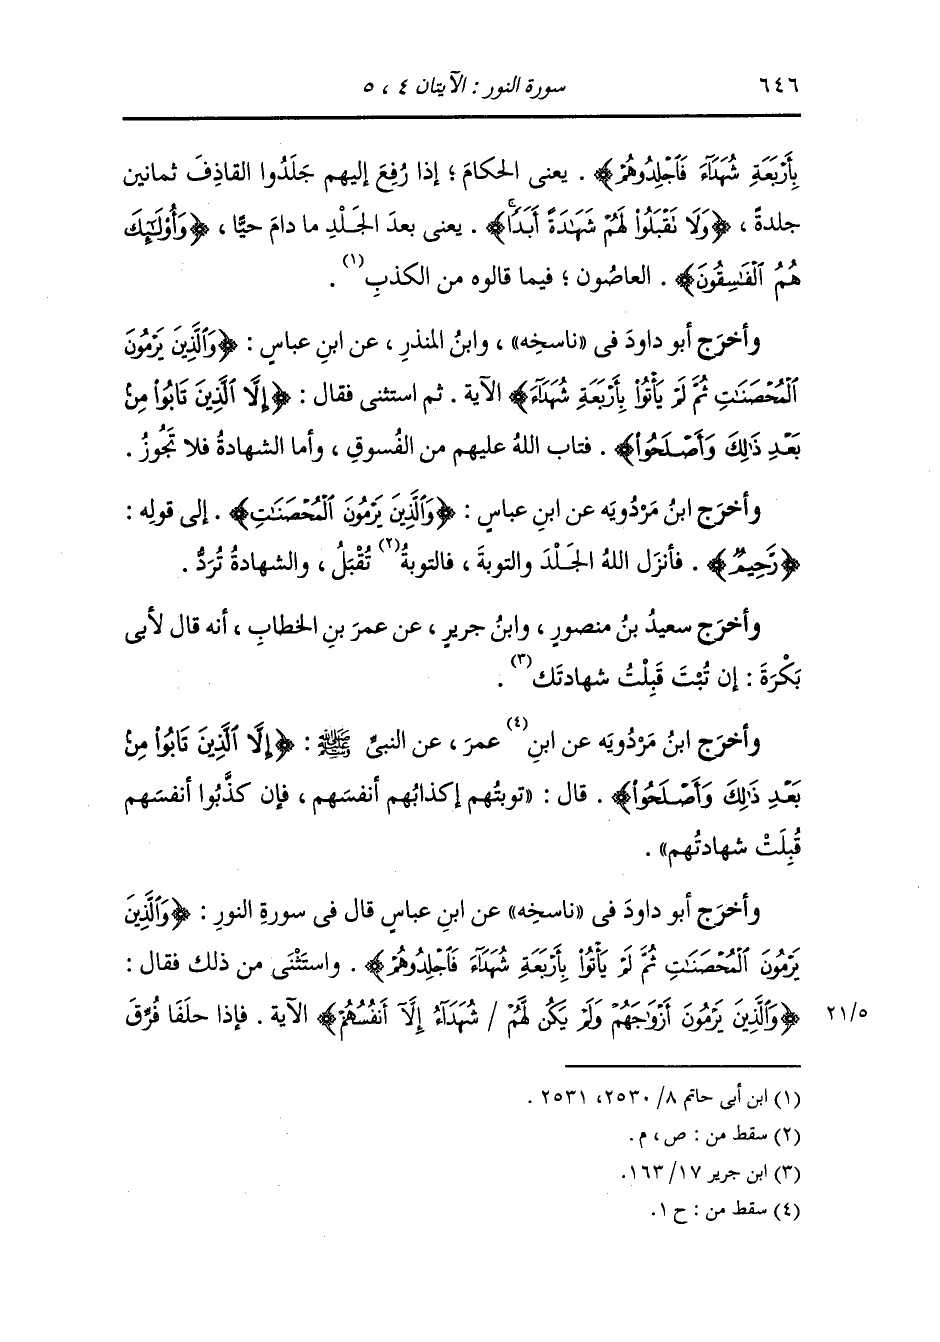 ٦٤٦ سورة النور : الآيتان ٤ ، ٥
بِأَرْبَعَةِ شُهَدَآءَ فَٱجْلِدُوهُمْ﴾ . يعنى الحكامَ ؛ إذا رُفِعَ إليهم جَلَدُوا القاذِفَ ثمانين
جلدةً ، ﴿وَلَا نَقْبَلُوا۟ لَهُمْ شَهَٰدَةً أَبَدًا﴾ . يعنى بعدَ الجَلْدِ ما دامَ حيًّا ، ﴿وَأُو۟لَٰٓئِكَ
هُمُ ٱلْفَٰسِقُونَ﴾ . العاصُون ؛ فيما قالوه من الكذبِ(١) .
وأخرَج أبو داودَ فى «ناسخِه» ، وابنُ المنذرِ ، عن ابنِ عباسٍ : ﴿وَٱلَّذِينَ يَرْمُونَ
ٱلْمُحْصَنَٰتِ ثُمَّ لَمْ يَأْتُوا۟ بِأَرْبَعَةِ شُهَدَآءَ﴾ الآية . ثم استثنى فقال : ﴿إِلَّا ٱلَّذِينَ تَابُوا۟ مِنۢ
بَعْدِ ذَٰلِكَ وَأَصْلَحُوا۟﴾ . فتاب اللهُ عليهم من الفُسوقِ ، وأما الشهادةُ فلا تَجُوزُ .
وأخرَج ابنُ مَرْدُويَه عن ابنِ عباسٍ : ﴿وَٱلَّذِينَ يَرْمُونَ ٱلْمُحْصَنَٰتِ﴾ . إلى قولِه :
﴿رَّحِيمٌ﴾ . فأنزَل اللهُ الجَلْدَ والتوبةَ ، فالتوبةُ(٢) تُقْبَلُ ، والشهادةُ تُرَدُّ .
وأخرَج سعيدُ بنُ منصورٍ ، وابنُ جريرٍ ، عن عمرَ بنِ الخطابِ ، أنه قال لأبى
بَكْرَةَ : إن تُبْتَ قَبِلْتُ شهادتَك(٣) .
وأخرَج ابنُ مَرْدُويَه عن ابنِ(٤) عمرَ ، عن النبىِّ ﷺ : ﴿إِلَّا ٱلَّذِينَ تَابُوا۟ مِنۢ
بَعْدِ ذَٰلِكَ وَأَصْلَحُوا۟﴾ . قال : «توبتُهم إكذابُهم أنفسَهم ، فإن كذَّبُوا أنفسَهم
قُبِلَتْ شهادتُهم» .
وأخرَج أبو داودَ فى «ناسخِه» عن ابنِ عباسٍ قال فى سورةِ النورِ : ﴿وَٱلَّذِينَ
يَرْمُونَ ٱلْمُحْصَنَٰتِ ثُمَّ لَمْ يَأْتُوا۟ بِأَرْبَعَةِ شُهَدَآءَ فَٱجْلِدُوهُمْ﴾ . واستَثْنَى من ذلك فقال :
٢١/٥ ﴿وَٱلَّذِينَ يَرْمُونَ أَزْوَٰجَهُمْ وَلَمْ يَكُن لَّهُمْ / شُهَدَآءُ إِلَّآ أَنفُسُهُمْ﴾ الآية . فإذا حلَفَا فُرِّقَ
(١) ابن أبى حاتم ٨/ ٢٥٣٠، ٢٥٣١ .
(٢) سقط من : ص ، م .
(٣) ابن جرير ١٧/ ١٦٣.
(٤) سقط من : ح ١.